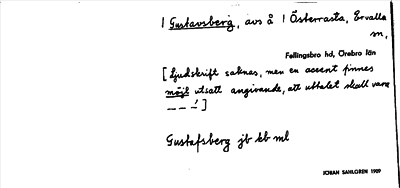 1 Gustavsberg, avs å 1 Österrasta, Ervalla
sn,
Fellingsbro hd, Örebro län
[Ljudskrift saknas, men en accent finnes
möjl utsatt angivande, att uttalet skall vara
– – –́]
Gustafsberg jb kb ml
JOHAN SAHLGREN 1909